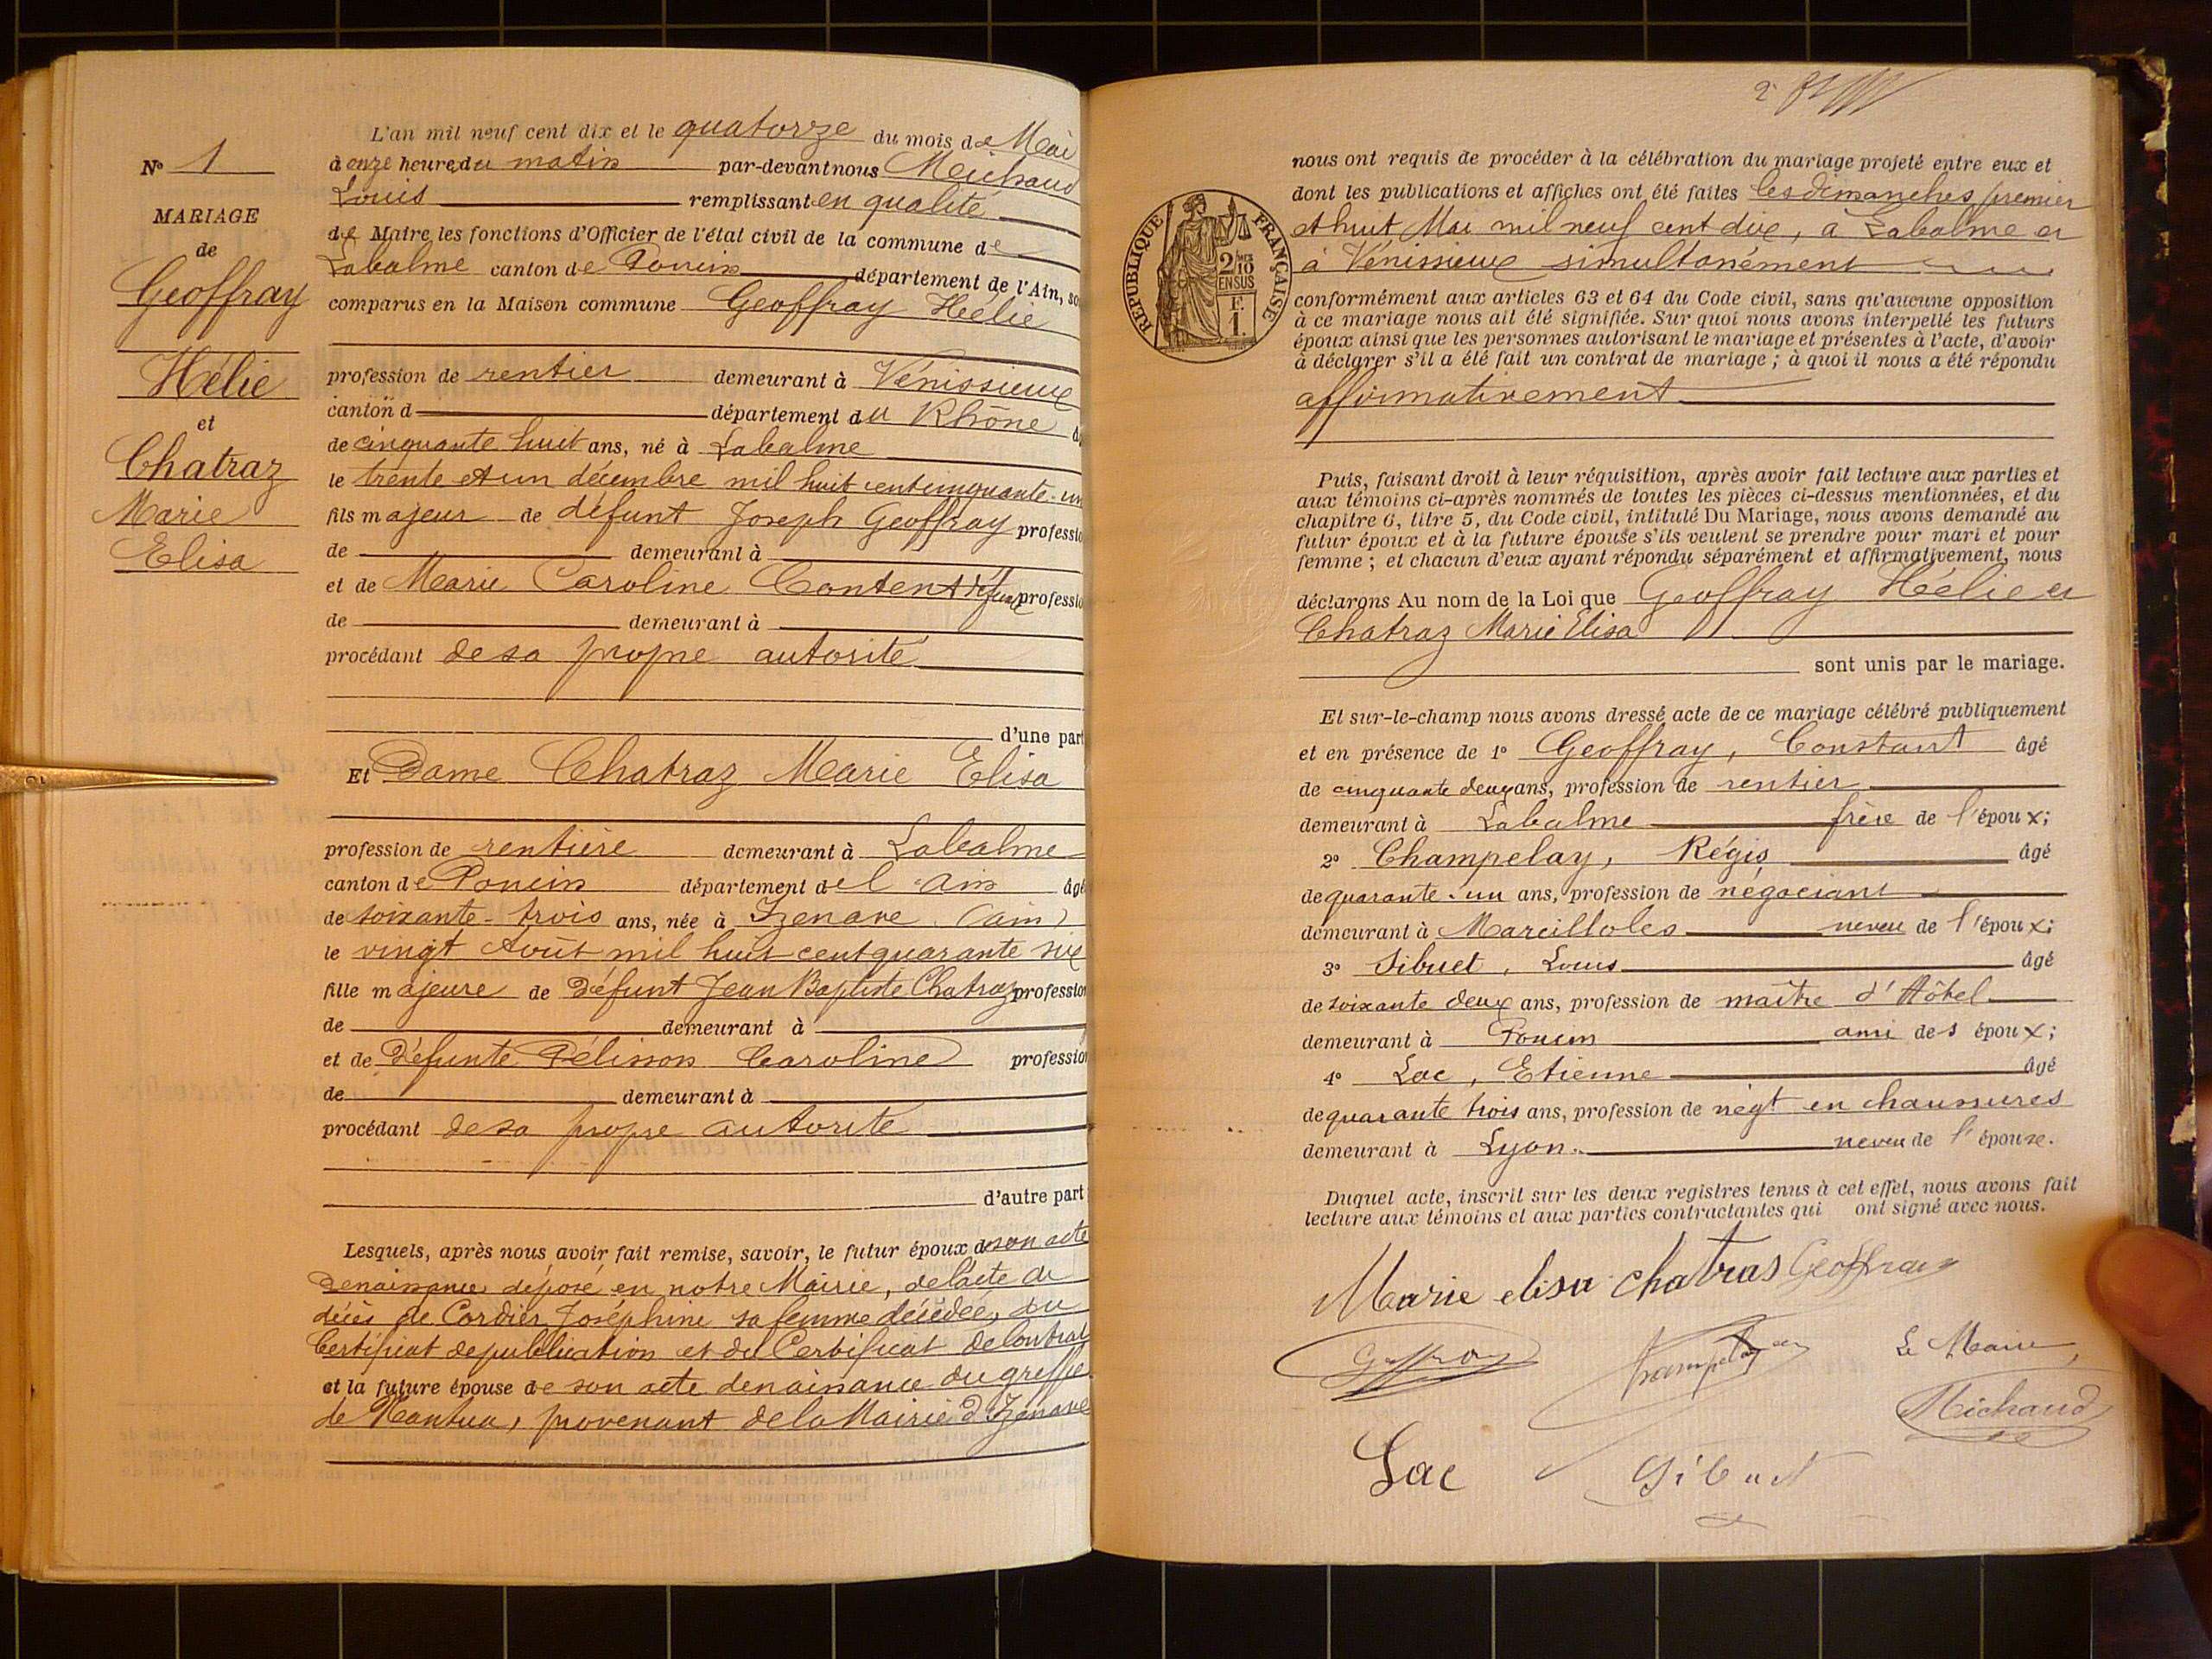 N° 1
MARIAGE
de
Geoffray
Hélie
et
Chatraz
Marie
Elisa
L'an mil neuf cent dix et le quatorze du mois de Mai
à onze heures du matin par-devant nous Michaud
Louis remplissant en qualité
de Maire les fonctions d'Officier de l'état civil de la commune de
Labalme canton de Poncin département de l'Ain, so
comparus en la Maison commune Geoffray Hélie
profession de rentier demeurant à Vénissieux
canton d département du Rhône
de cinquante huit ans, né à Labalme
le trente et un décembre mil huit cent cinquante-un
fils majeur de défunt Joseph Geoffray professio
de demeurant à
et de Marie Caroline Content professio
de demeurant à
procédant de sa propre autorité
d'une part
Et Dame Chatraz Marie Elisa
profession de rentière demeurant à Labalme
canton de Poncin département de l'Ain âgé
de soixante-trois ans, née à Izenave (ain)
le vingt Août mil huit cent quarante six
fille majeure de Défunt Jean Baptiste Chatraz profession
de demeurant à
et de Défunte Pélisson Caroline profession
de demeurant à
procédant de sa propre autorité
d'autre part
Lesquels, après nous avoir fait remise, savoir, le futur époux de son acte
de naissance déposé en notre Mairie, de l'acte de
décès de Cordier Joséphine sa femme décédée, du
Certificat de publication et du Certificat de Contrat
et la future épouse de son acte de naissance du greffe
de Nantua, provenant de la Mairie d'Izenave
2
nous ont requis de procéder à la célébration du mariage projeté entre eux et
dont les publications et affiches ont été faites les dimanches premier
et huit Mai mil neuf cent dix, à Labalme et
à Vénissieux simultanément
RÉPUBLIQUE FRANÇAISE
2/10 EN SUS
F.
1.
conformément aux articles 63 et 64 du Code civil, sans qu'aucune opposition
à ce mariage nous ait été signifiée. Sur quoi nous avons interpellé les futurs
époux ainsi que les personnes autorisant le mariage et présentes à l'acte, d'avoir
à déclarer s'il a été fait un contrat de mariage ; à quoi il nous a été répondu
affirmativement
Puis, faisant droit à leur réquisition, après avoir fait lecture aux parties et
aux témoins ci-après nommés de toutes les pièces ci-dessus mentionnées, et du
chapitre 6, titre 5, du Code civil, intitulé Du Mariage, nous avons demandé au
futur époux et à la future épouse s'ils veulent se prendre pour mari et pour
femme ; et chacun d'eux ayant répondu séparément et affirmativement, nous
déclarons Au nom de la Loi que Geoffray Hélie et
Chatraz Marie Elisa
sont unis par le mariage.
Et sur-le-champ nous avons dressé acte de ce mariage célébré publiquement
et en présence de 1° Geoffray, Constant âgé
de cinquante deux ans, profession de rentier
demeurant à Labalme frère de l'époux;
2° Champelay, Régis âgé
de quarante-un ans, profession de négociant
demeurant à Marcilloles neveu de l'époux;
3° Sibuet, Louis âgé
de soixante deux ans, profession de maître d'Hôtel
demeurant à Poncin ami des époux;
4° Lac, Etienne âgé
de quarante trois ans, profession de négt en chaussures
demeurant à Lyon. neveu de l'épouse.
Duquel acte, inscrit sur les deux registres tenus à cet effet, nous avons fait
lecture aux témoins et aux parties contractantes qui ont signé avec nous.
Marie elisa chatras Geoffray
Geoffray Champelay Le Maire,
Michaud
Lac Sibuet